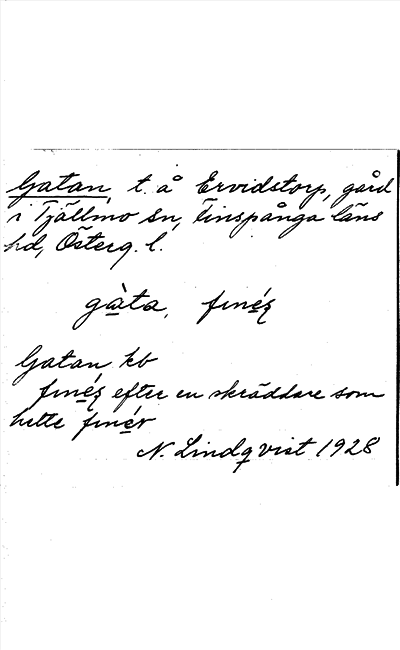 Gatan, t. å Ervidstorp, gård
i Tjällmo sn, Finspånga läns
hd, Österg. l.
gàta, finés
Gatan kb
finés efter en skräddare som
hette finér
N. Lindqvist 1928